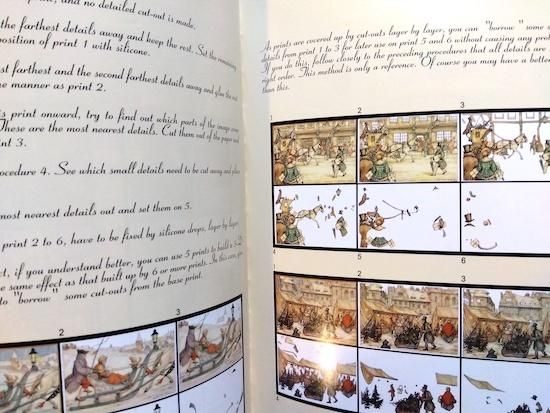 , and no detailed cut-out is made.
the farthest details away and keep the rest. Set the remaining
position of print 1 with silicone.
st farthest and the second farthest details away and glue the rest
e manner as print 2.
is print onward, try to find out which parts of the image
These are the most nearest details. Cut them out of the paper and
int 3.
rocedure 4. See which small details need to be cut away and glue
most nearest details out and set them on 5.
print 2 to 6, have to be fixed by silicone drops, layer by layer.
ct, if you understand better, you can use 5 prints to build a 3-D
e same effect as that built up by 6 or more prints. In this case,
to "borrow" some cut-outs from the base print.
2
3
As prints are covered up by cut-outs layer by layer, you can "borrow" some s
details from print 1 to 3 for later use on print 5 and 6 without causing any pro
If you do this, follow closely to the preceding procedures that all details are
right order. This method is only a reference. Of course you may have a better
than this.
1
2
3
4
5
6
1
2
3
4